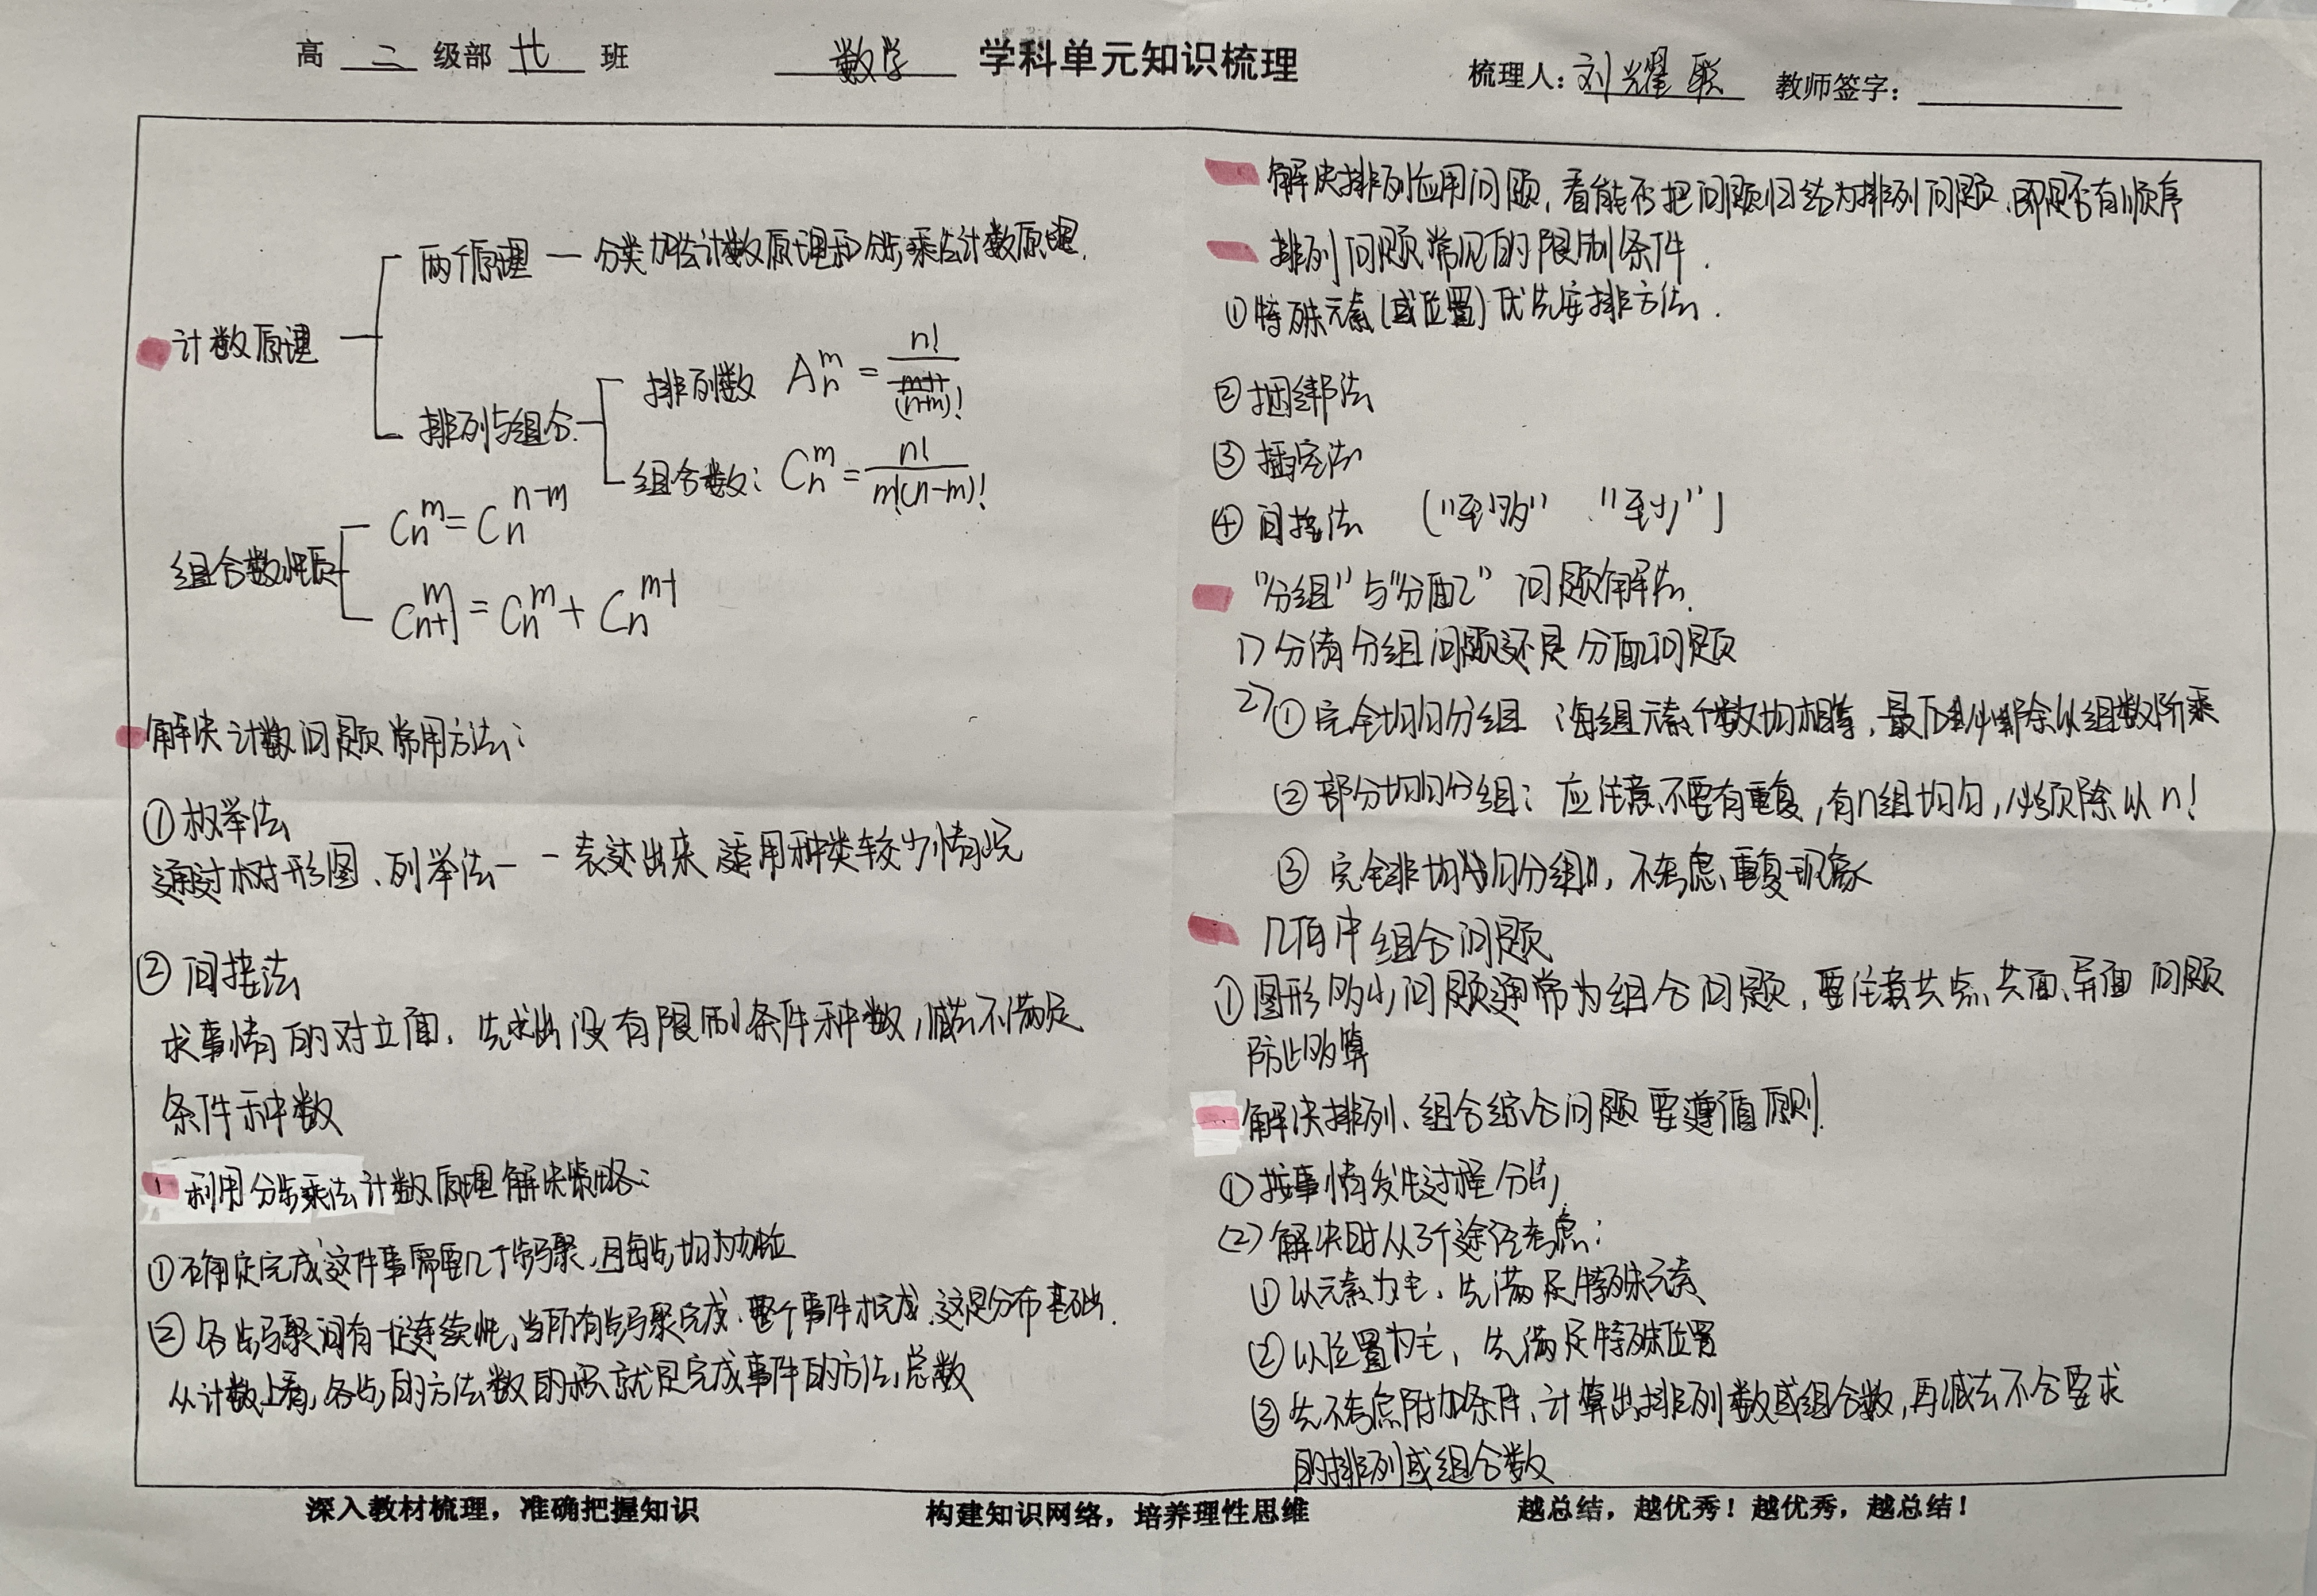 高 二 级部 廿 班
数学 学科单元知识梳理
梳理人：刘耀联 教师签字：
计数原理
两个原理 — 分类加法计数原理和分步乘法计数原理.
排列与组合.
排列数 A_n^m = n!/(n-m)!
组合数： C_n^m = n!/m!(n-m)!
组合数性质
C_n^m = C_n^{n-m}
C_{n+1}^m = C_n^m + C_n^{m-1}
解决计数问题常用方法：
① 枚举法
通过树形图、列举法一一表达出来 适用种类较少情况
② 间接法
求事情的对立面，先求出没有限制条件种数，减去不满足
条件种数
利用分步乘法计数原理解决策略：
① 确定完成这件事需要几个步骤，且每步均为
② 各步骤间有一定连续性，当所有步骤完成，整个事件才完成，这是分布基础.
从计数上看，各步的方法数的积就是完成事件的方法总数
解决排列应用问题，看能否把问题归结为排列问题，即是否有顺序
排列问题常见的限制条件.
① 特殊元素(或位置)优先安排方法.
② 捆绑法
③ 插空法
④ 间接法 (“至多”、“至少”)
“分组”与“分配” 问题解法.
1) 分清分组问题还是分配问题
2) ① 完全均匀分组 每组元素个数均相等，最后必除以组数阶乘
② 部分均匀分组：应注意不要有重复，有n组均匀，必须除以n!
③ 完全非均匀分组，不考虑重复现象
几何中组合问题
① 图形多少问题通常为组合问题，要注意共点、共面、异面 问题
防止多算
解决排列、组合综合问题要遵循原则.
① 按事情发生过程分步
(2) 解决时从3个途径考虑：
① 以元素为主，先满足特殊元素
② 以位置为主，先满足特殊位置
③ 先不考虑附加条件，计算出排列数或组合数，再减去不合要求
的排列或组合数
深入教材梳理，准确把握知识 构建知识网络，培养理性思维 越总结，越优秀！越优秀，越总结！